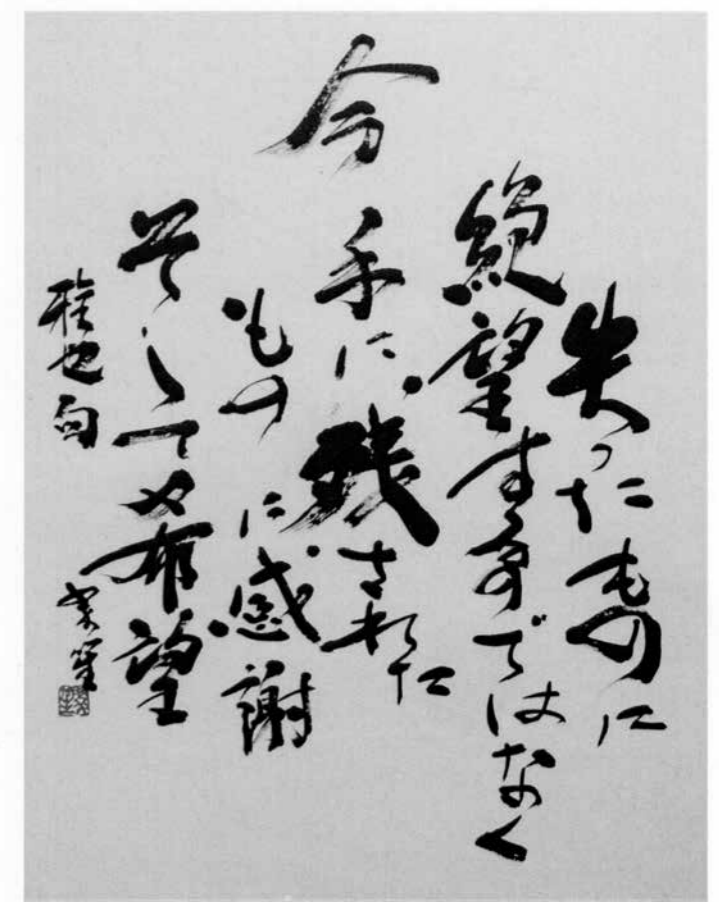 失ったものに
絶望するのではなく
今
手に残された
ものに感謝
そして希望
雅也句